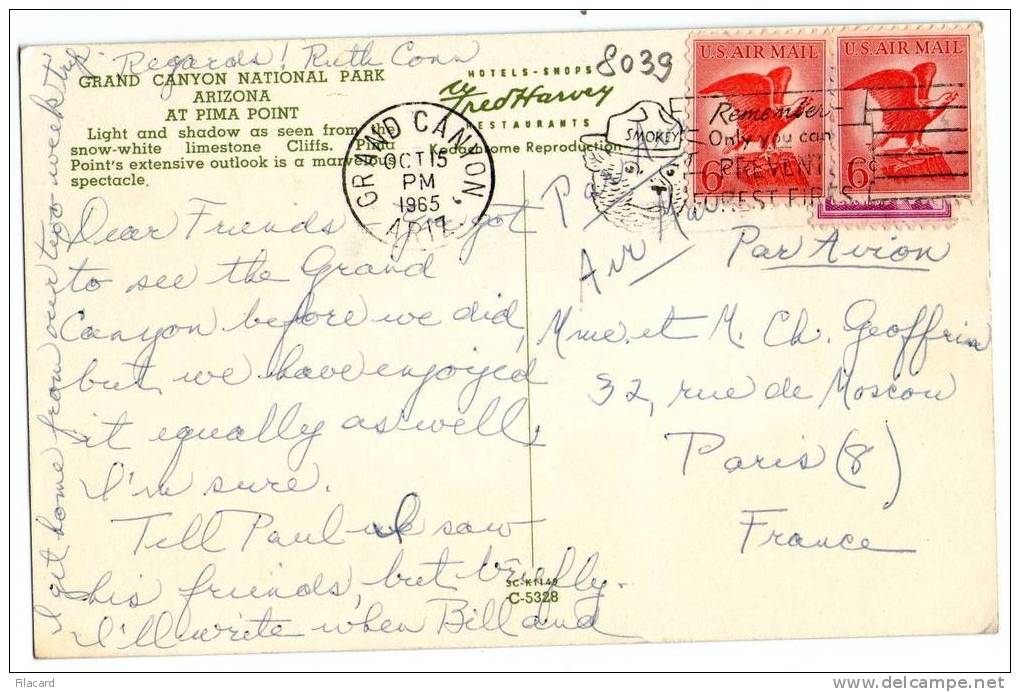 Regards! Ruth Conn
GRAND CANYON NATIONAL PARK
ARIZONA
AT PIMA POINT
Light and shadow as seen from the
snow-white limestone Cliffs. Pima
Point's extensive outlook is a marvelous
spectacle.
HOTELS-SHOPS
by Fred Harvey
RESTAURANTS
Kodachrome Reproduction
8039
GRAND CANYON,
OCT 15
PM
1965
ARIZ.
SMOKEY
Remember
Only you can
PREVENT
FOREST FIRES!
U.S. AIR MAIL
6¢
U.S. AIR MAIL
6¢
Dear Friends You got
to see the Grand
Canyon before we did,
but we have enjoyed
it equally as well,
I'm sure.
Tell Paul we saw
his friends, but briefly.
I'll write when Bill and
I get home from our two-week trip
Par Avion
Air Mail
Par Avion
Mme. et M. Ch. Geoffrin
32, rue de Moscou
Paris (8)
France
SC-K1149
C-5328
Filacard
delcampe.net